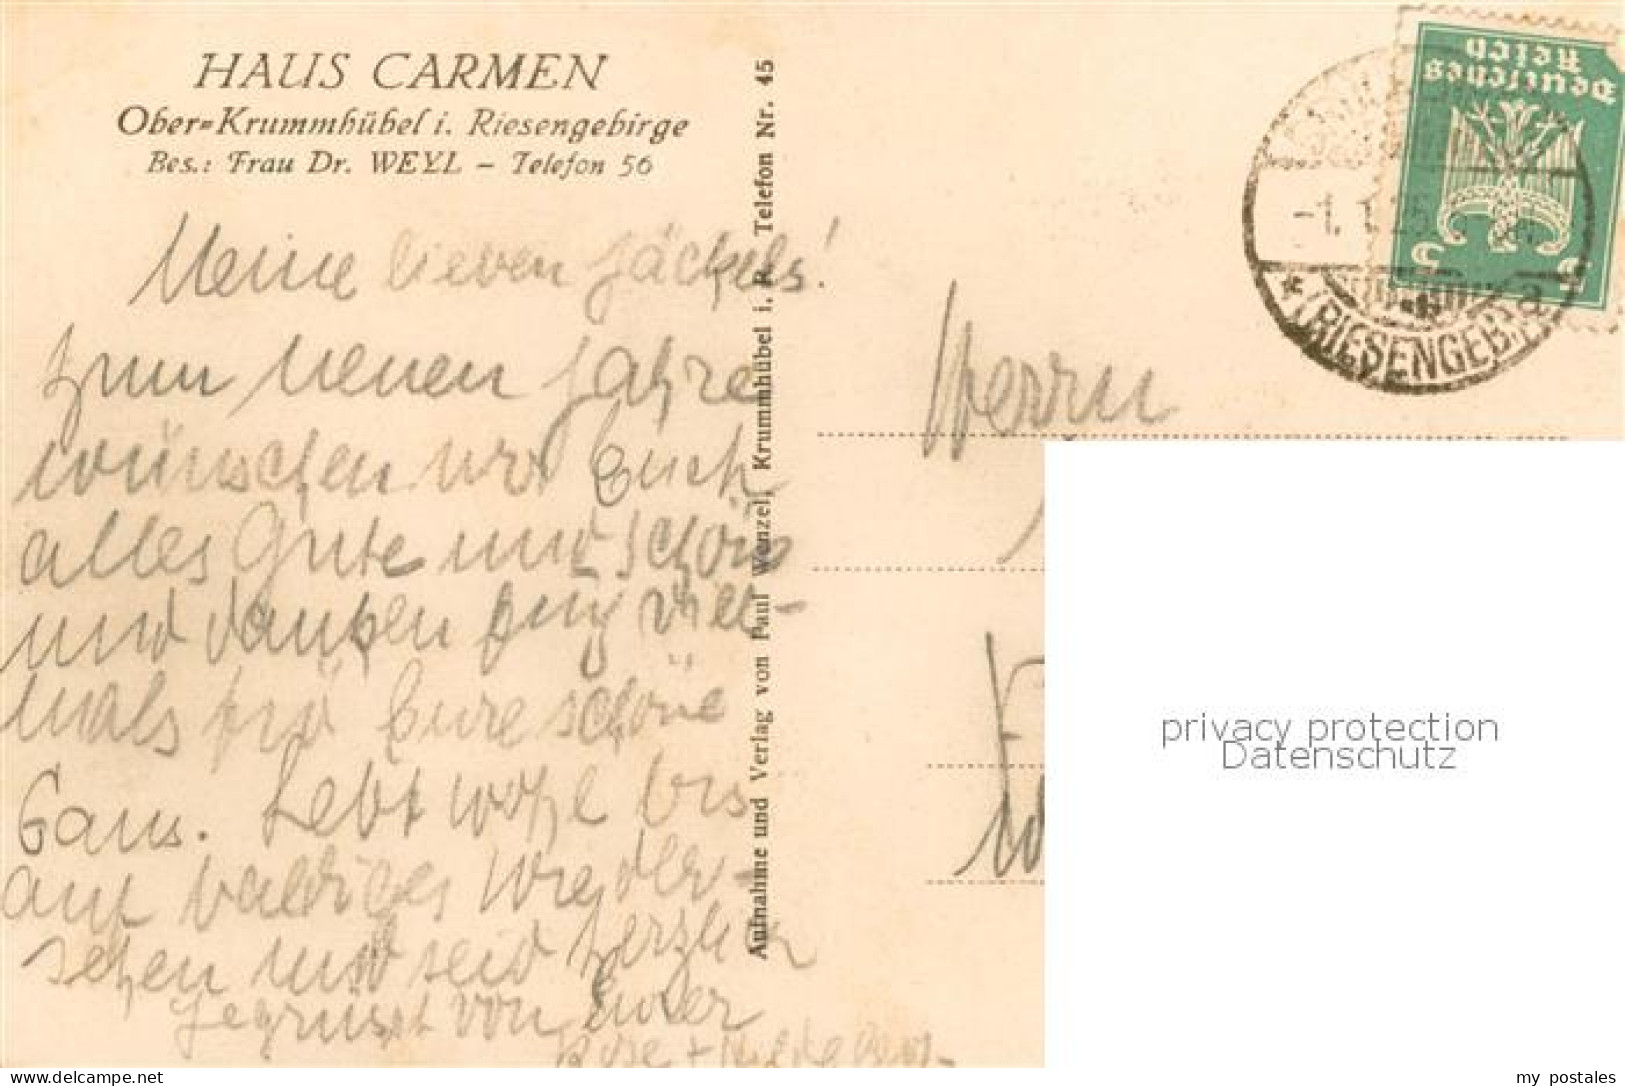 HAUS CARMEN
Ober=Krummhübel i. Riesengebirge
Bes.: Frau Dr. WEYL – Telefon 56
Meine lieben Jäckels!
zum neuen Jahre
wünschen wir Euch
alles Gute und Schöne
und danken viel-
mals für Eure schöne
Gans. Lebt wohl bis
auf baldiges Wieder-
sehen und seid herzlich
gegrüsst von Eurer
Aufnahme und Verlag von Paul Wenzel, Krummhübel i. R. Telefon Nr. 45
Deutsches
Reich
5 5
-1. 1. 25.
* (RIESENGEB.) a
Herrn
privacy protection
Datenschutz
my postales